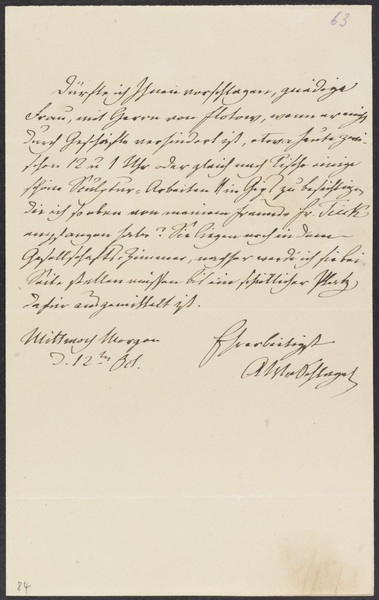 63
Dürfte ich Ihnen vorschlagen, gnädige
Frau, mit Herrn von Flotow, wenn er nicht
durch Geschäfte verhindert ist, etwa heute zwi-
schen 12 u 1 Uhr oder gleich nach Tische einige
schöne Sculptur-Arbeiten in Gips zu besichtigen
die ich so eben von meinem Freunde Fr. Tieck
empfangen habe? Sie liegen noch in dem
Gesellschafts-Zimmer, nachher werde ich sie bei
Seite stellen müssen bis ein schicklicher Platz
dafür ausgemittelt ist.
Mittwoch Morgen
d. 12ten Oct.
Ehrerbietigst
AWvSchlegel
84